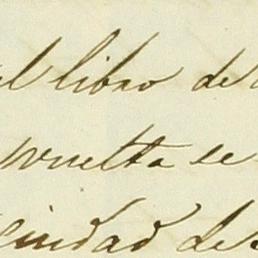 el libro de
vuelta se
ciudad de